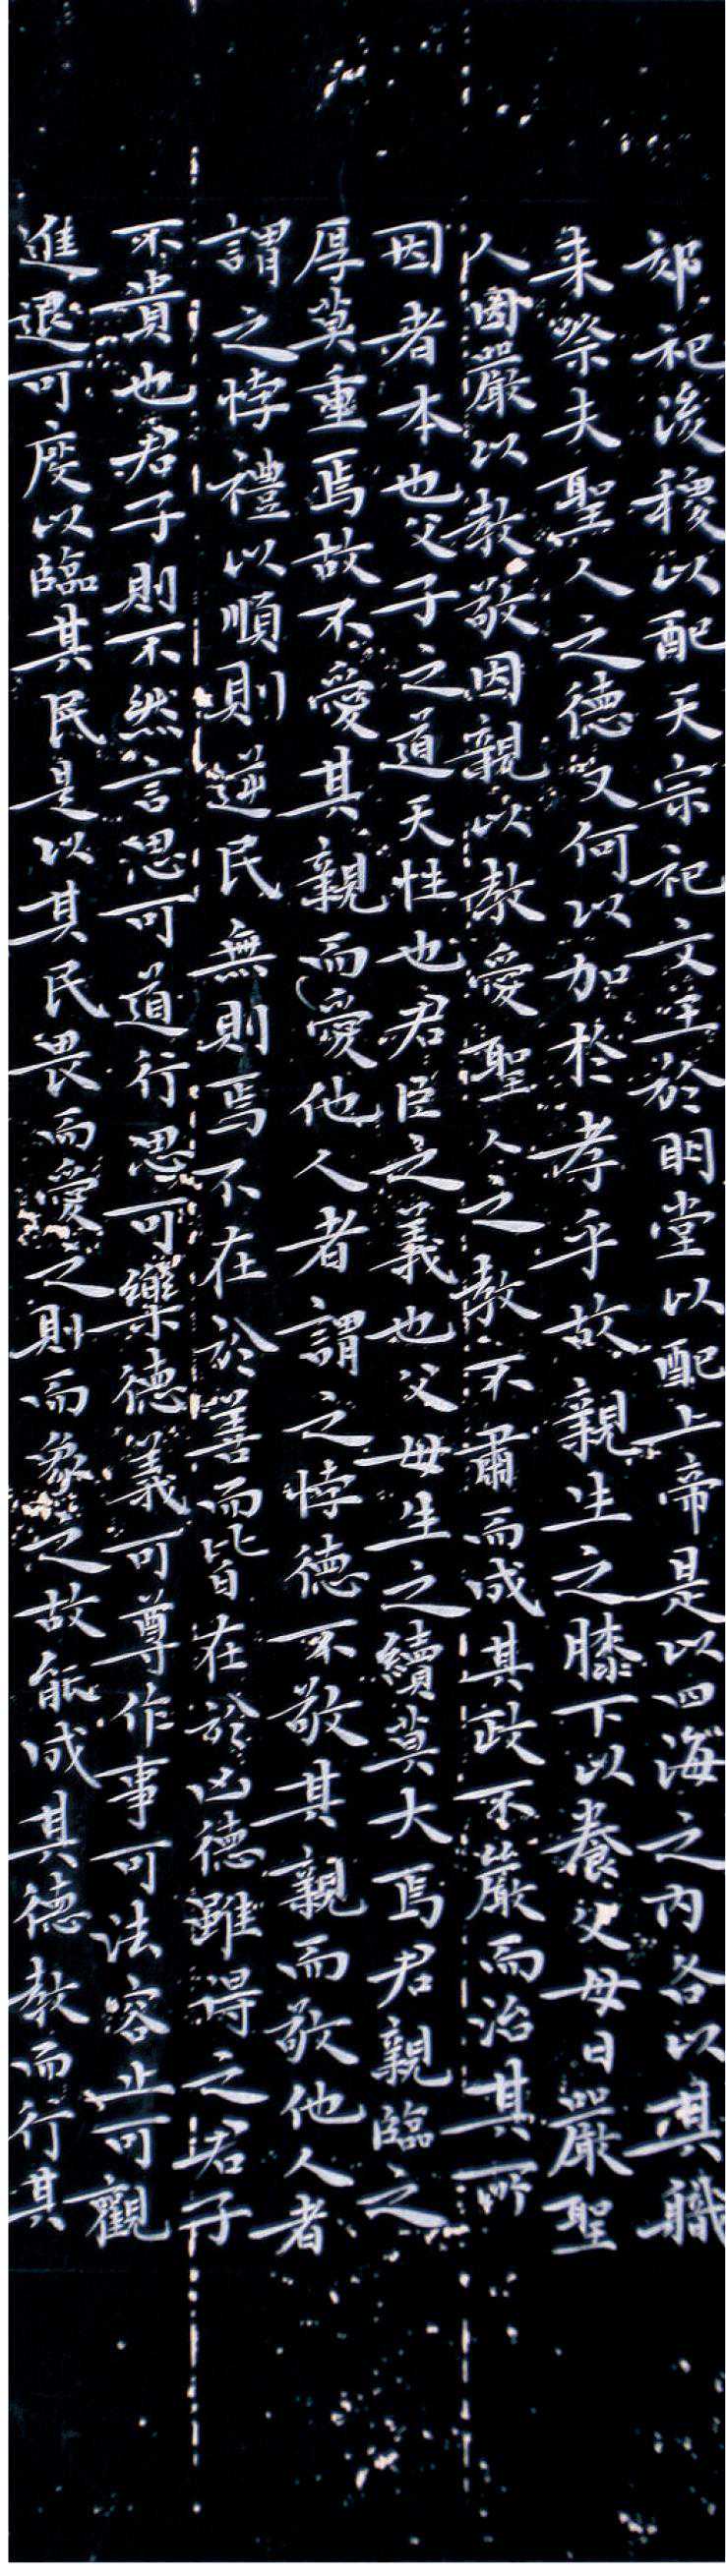 郊祀后稷以配天宗祀文王於明堂以配上帝是以四海之内各以其職
来祭夫聖人之德又何以加於孝乎故親生之膝下以養父母日嚴聖
人因嚴以教敬因親以教愛聖人之教不肅而成其政不嚴而治其所
因者本也父子之道天性也君臣之義也父母生之續莫大焉君親臨之
厚莫重焉故不愛其親而愛他人者謂之悖德不敬其親而敬他人者
謂之悖禮以順則逆民無則焉不在於善而皆在於凶德雖得之君子
不貴也君子則不然言思可道行思可樂德義可尊作事可法容止可觀
進退可度以臨其民是以其民畏而愛之則而象之故能成其德教而行其